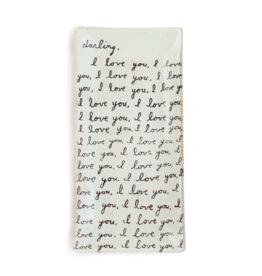 darling,
I love you, I love
you, I love you, I love
you, I love you, I love
I love you, I love you,
love you, I love you, I
love you, I love you, I
love you, I love you, I love
you, I love you, I love
you, I love you, I love
you, I love you, I love
you, I love you, I love you,
I love you, I love you, I
love you, I love you, I
love you, I love you, I love